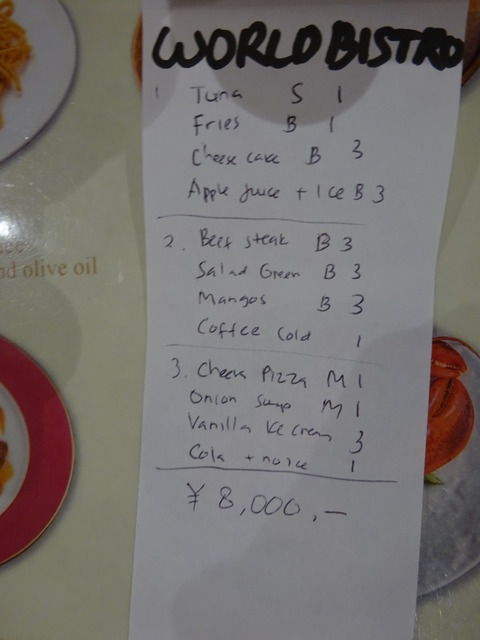 WORLD BISTRO
1 Tuna S 1
Fries B 1
Cheese cake B 3
Apple Juice + Ice B 3
2. Beef steak B 3
Salad Green B 3
Mangos B 3
Coffee Cold 1
3. Chees Pizza M 1
Onion Soup M 1
Vanilla Ice cream 3
Cola + no ice 1
¥ 8,000,—
nd olive oil